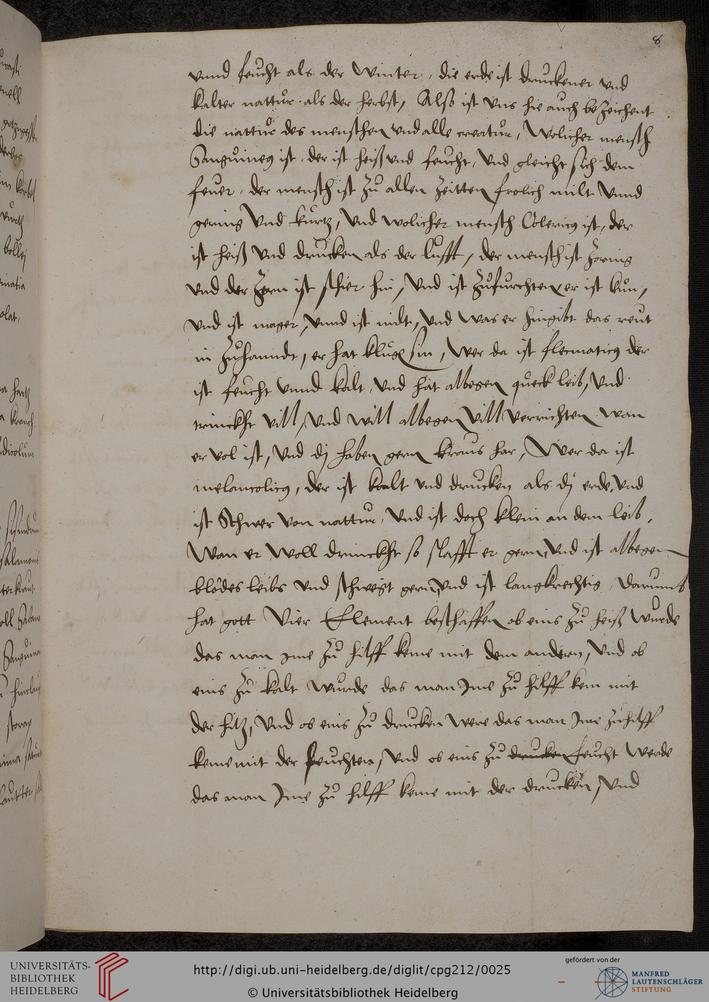 8
vnnd feucht als der Winter, die erde ist druckener vnd
kalter nattur als der herbst, Also ist vns hie auch bezeichent
die nattur des menschen vnd alle creatur, Welicher mensch
Sanguineus ist, der ist heiß vnd feucht, vnd gleicht sich dem
feuer, der mensch ist zu allen Zeitten frolich milt vnnd
gering vnd kurtz, vnd wolicher mensch Colericus ist, der
ist heiß vnd drucken als der lufft, der mensch ist zornig
vnd der Zorn ist schier hin, vnd ist zufurchten, er ist kun,
vnd ist mager, vnnd ist milt, vnd was er hingibt das reut
in zuhanndt, er hat klugen sin, Wer da ist flematicus der
ist feucht vnnd kalt, vnd hat albegen queck leib, vnd
trinckht vill, vnd will albegen vill verrichten wan
er vol ist, vnd dj haben gern kraus har, Wer da ist
melancolicus, der ist kalt vnd drucken als dj erde, vnd
ist Schwer von nattur, vnd ist doch klein an dem leib,
Wan er Woll drinckht so slafft er gern, vnd ist albegen
blodes leibs vnd schweigt gern, vnd ist langkrechtig, Darumb
hat gott Vier Element beschaffen ob eins zu heiß Wurde
das man jme zu hilff keme mit dem andern, Vnd ob
eins zu kalt Wurde das man Jme zu hilff kem mit
der hitz, Vnd ob eins zu drucken were das man Jme zuhilff
keme mit der feuchten, Vnd ob eins zu drucken feucht Werde
das man Jme zu hilff keme mit der drucken, Vnd
UNIVERSITÄTS-
BIBLIOTHEK
HEIDELBERG
http://digi.ub.uni-heidelberg.de/diglit/cpg212/0025
© Universitätsbibliothek Heidelberg
gefördert von der
MANFRED
LAUTENSCHLÄGER
STIFTUNG